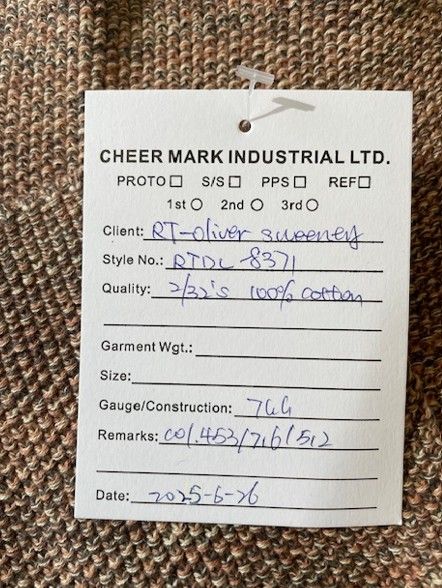 CHEER MARK INDUSTRIAL LTD.
PROTO □ S/S □ PPS □ REF □
1st ○ 2nd ○ 3rd ○
Client: RT-oliver sweeney
Style No.: RTDL-8371
Quality: 2/32's 100% cotton
Garment Wgt.:
Size:
Gauge/Construction: 7GG
Remarks: col.453/716/512
Date: 2025-6-26